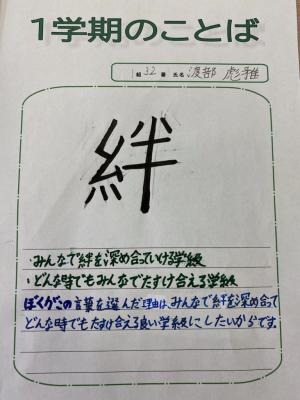 1学期のことば
組 32 番 氏名 渡部 彪雅
絆
・みんなで絆を深め合っていける学級
・どんな時でもみんなでたすけ合える学級
ぼくがこの言葉を選んだ理由は、みんなで絆を深め合って
どんな時でもたすけ合える良い学級にしたいからです。